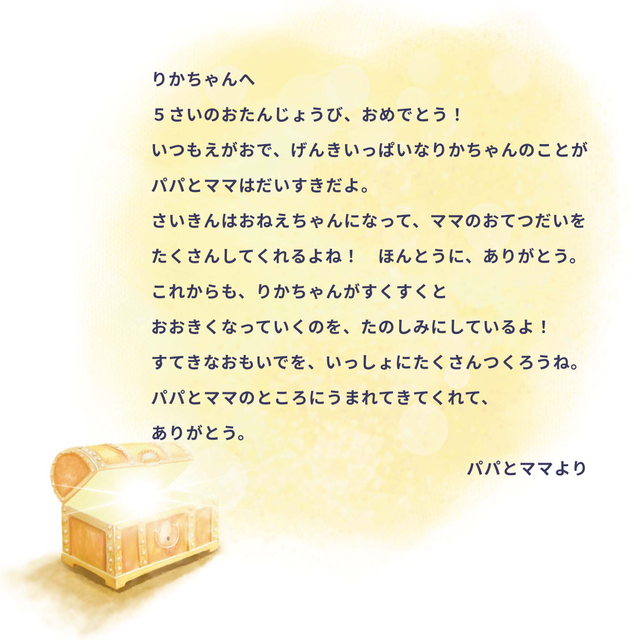 りかちゃんへ
５さいのおたんじょうび、おめでとう！
いつもえがおで、げんきいっぱいなりかちゃんのことが
パパとママはだいすきだよ。
さいきんはおねえちゃんになって、ママのおてつだいを
たくさんしてくれるよね！　ほんとうに、ありがとう。
これからも、りかちゃんがすくすくと
おおきくなっていくのを、たのしみにしているよ！
すてきなおもいでを、いっしょにたくさんつくろうね。
パパとママのところにうまれてきてくれて、
ありがとう。
パパとママより